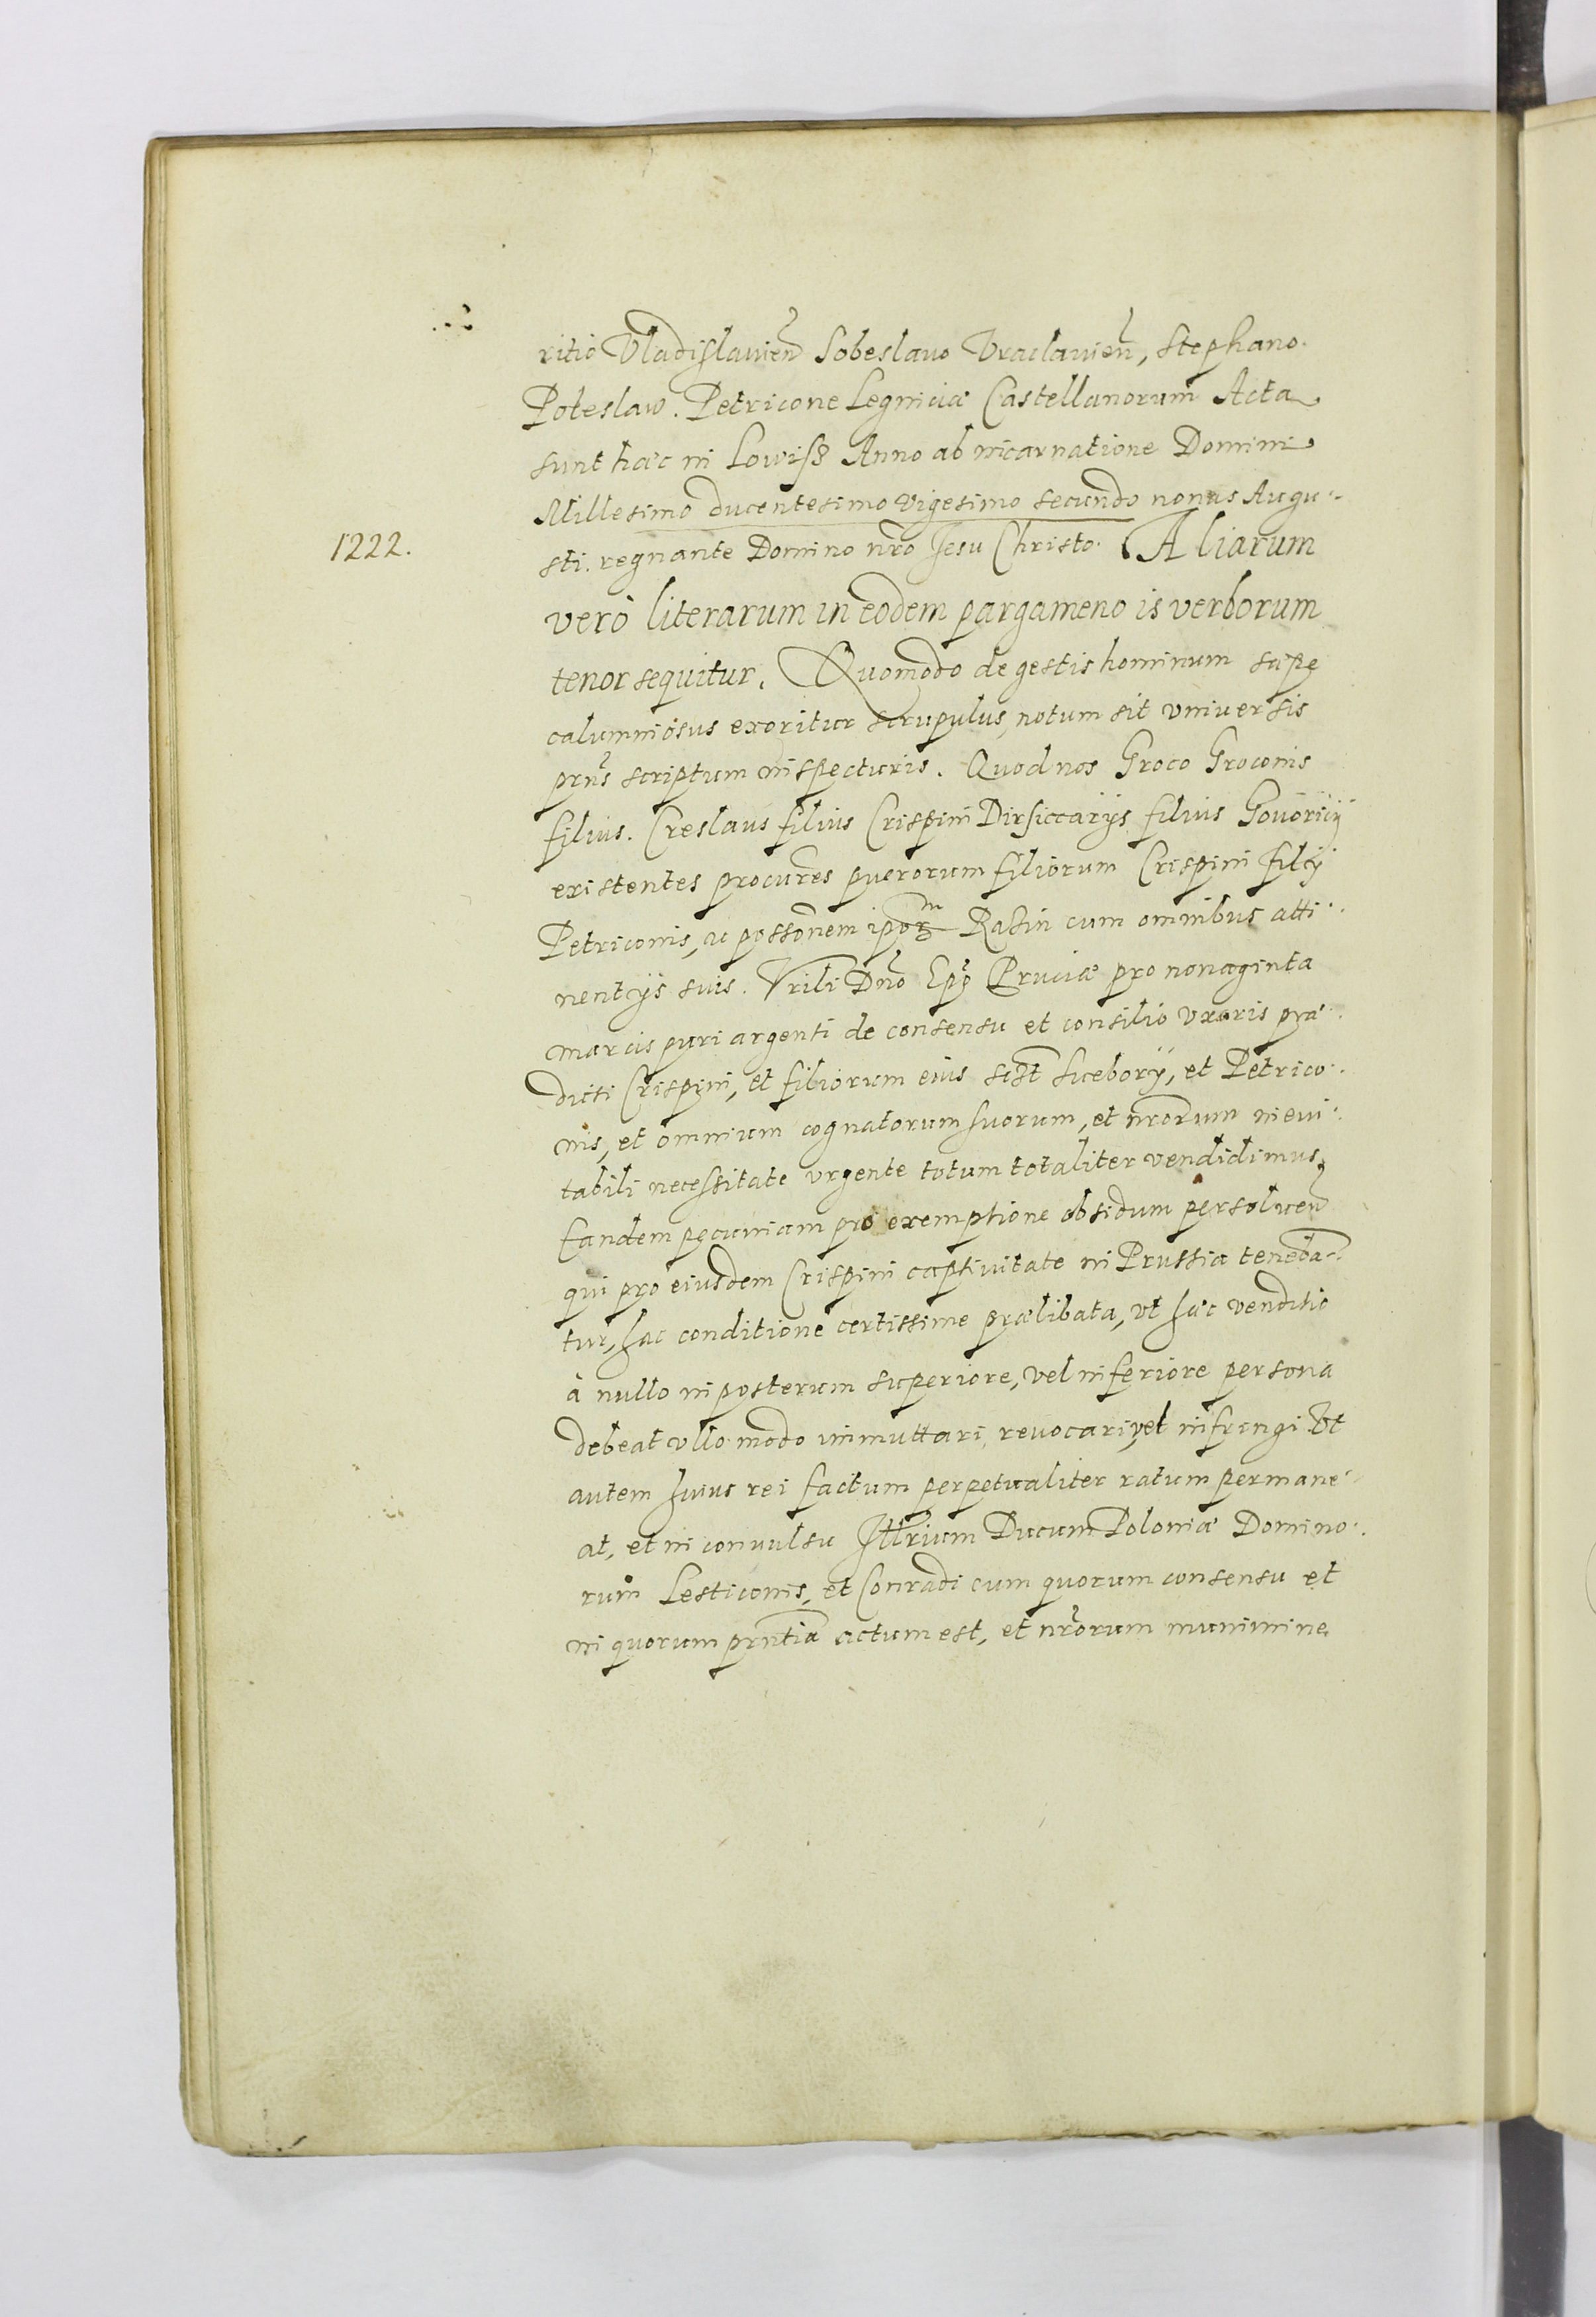 ritio Vladislauień Sobeslauo Vraclauień, Stephano
Poteslaw. Petricone Legniciæ Castellanorum Acta
sunt hæc in Lowisz Anno ab incarnatione Domini
Millesimo ducentesimo vigesimo secundo nonas Augu-
1222.
sti. regnante Domino nrõ Jesu Christo. Aliarum
verò literarum in eodem pargameno is verborum
tenor sequitur. Quomodo de gestis hominum sæpe
calumniosus exoritur scrupulus, notum sit vniuersis
prñs scriptum inspecturis. Quod nos Groco Groconis
filius. Creslaus filius Crispini Dirsiccarÿs filius Gouoricÿ
existentes procures puerorum filiorum Crispini filÿ
Petriconis, ac possoñem ipor m Rasin cum omnibus atti-
nentÿs suis. Vrili Dño Epõ Pruciæ pro nonaginta
marcis puri argenti de consensu et consilio vxoris præ-
dicti Crispini, et filiorum eius sczt Sucebory, et Petrico-
nis, et omnium cognatorum suorum, et nrõrum ineui-
tabili necessitate vrgente totum totaliter vendidimus,
Eandem pecuniam pro exemptione obsidum persoluen̄
qui pro eiusdem Crispini captiuitate in Prussia teneba-
tur, hac conditione certissime prælibata, vt hæc venditio
à nullo inposterum superiore, vel inferiore persona
debeat vllo modo immuttari, revocari, vel infringi Vt
autem huius rei factum perpetualiter ratum permane-
at, et in conuulsu Jllrium Ducum Poloniæ Domino-
rum Lesticonis, et Conradi cum quorum consensu et
in quorum prñtia actum est, et nrõrum munimine